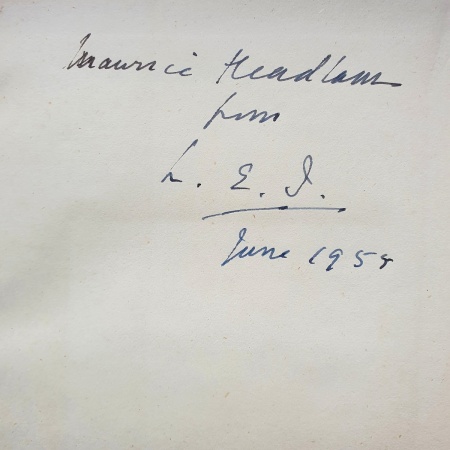 Maurice Headlam
from
L. E. J.
June 1954